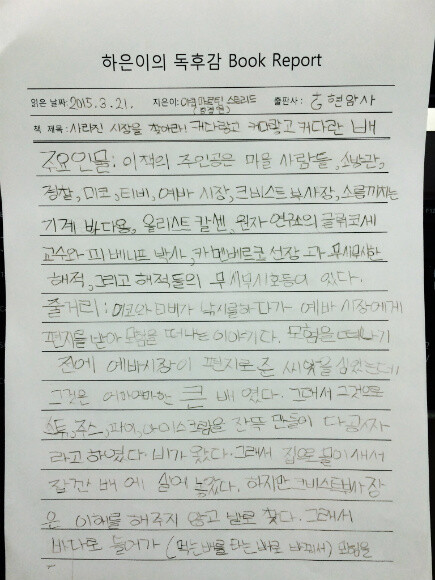 하은이의 독후감 Book Report
읽은 날짜: 2015.3.21. 지은이: 야콥 마르틴 스트리드 출판사: 현암사
책 제목: 사라진 시장을 찾아라! 커다랗고 커다랗고 커다란 배
주요인물: 이책의 주인공은 마을 사람들, 소방관,
경찰, 미코, 티버, 예바 시장, 크비스트 부시장, 소름끼치는
기계 바다용, 울리스트 칼센, 원자 연구소의 글루코세
교수와 피 베니프 박사, 카멘베르코 선장 과 무시무시한
해적, 그리고 해적들의 무시무시호등이 있다.
줄거리: 미코와 티버가 낚시를하다가 예바 시장에게
편지를 받아 모험을 떠나는 이야기다. 모험을 떠나기
전에 예바시장이 편지로 준 씨앗을 심었는데
그것은 어마어마한 큰 배 였다. 그래서 그것으로
스튜, 주스, 파이, 아이스크림을 잔뜩 만들어 다 공짜
라고 하였다. 비가 왔다. 그래서 집으로 물이새서
잠깐 배 에 실어 놓았다. 하지만 크비스트부시장
은 이해를 해주지 않고 그래서
바다로 들어가 (먹는배를 타는 배로 바꿔서) 모험을